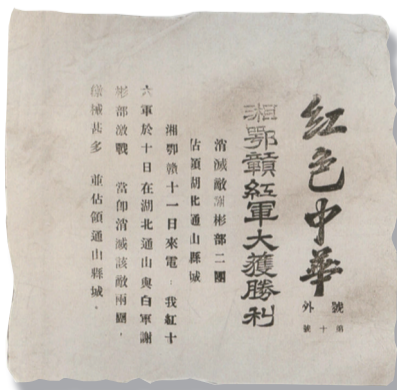 紅色中華
號外
第十號
湘鄂贛紅軍大獲勝利
消滅敵謝彬部二團
佔領湖北通山縣城
湘鄂贛十一日來電 我紅十
六軍於十日在湖北通山與白軍謝
彬部激戰 當卽消滅該敵兩團，
繳械甚多 並佔領通山縣城．